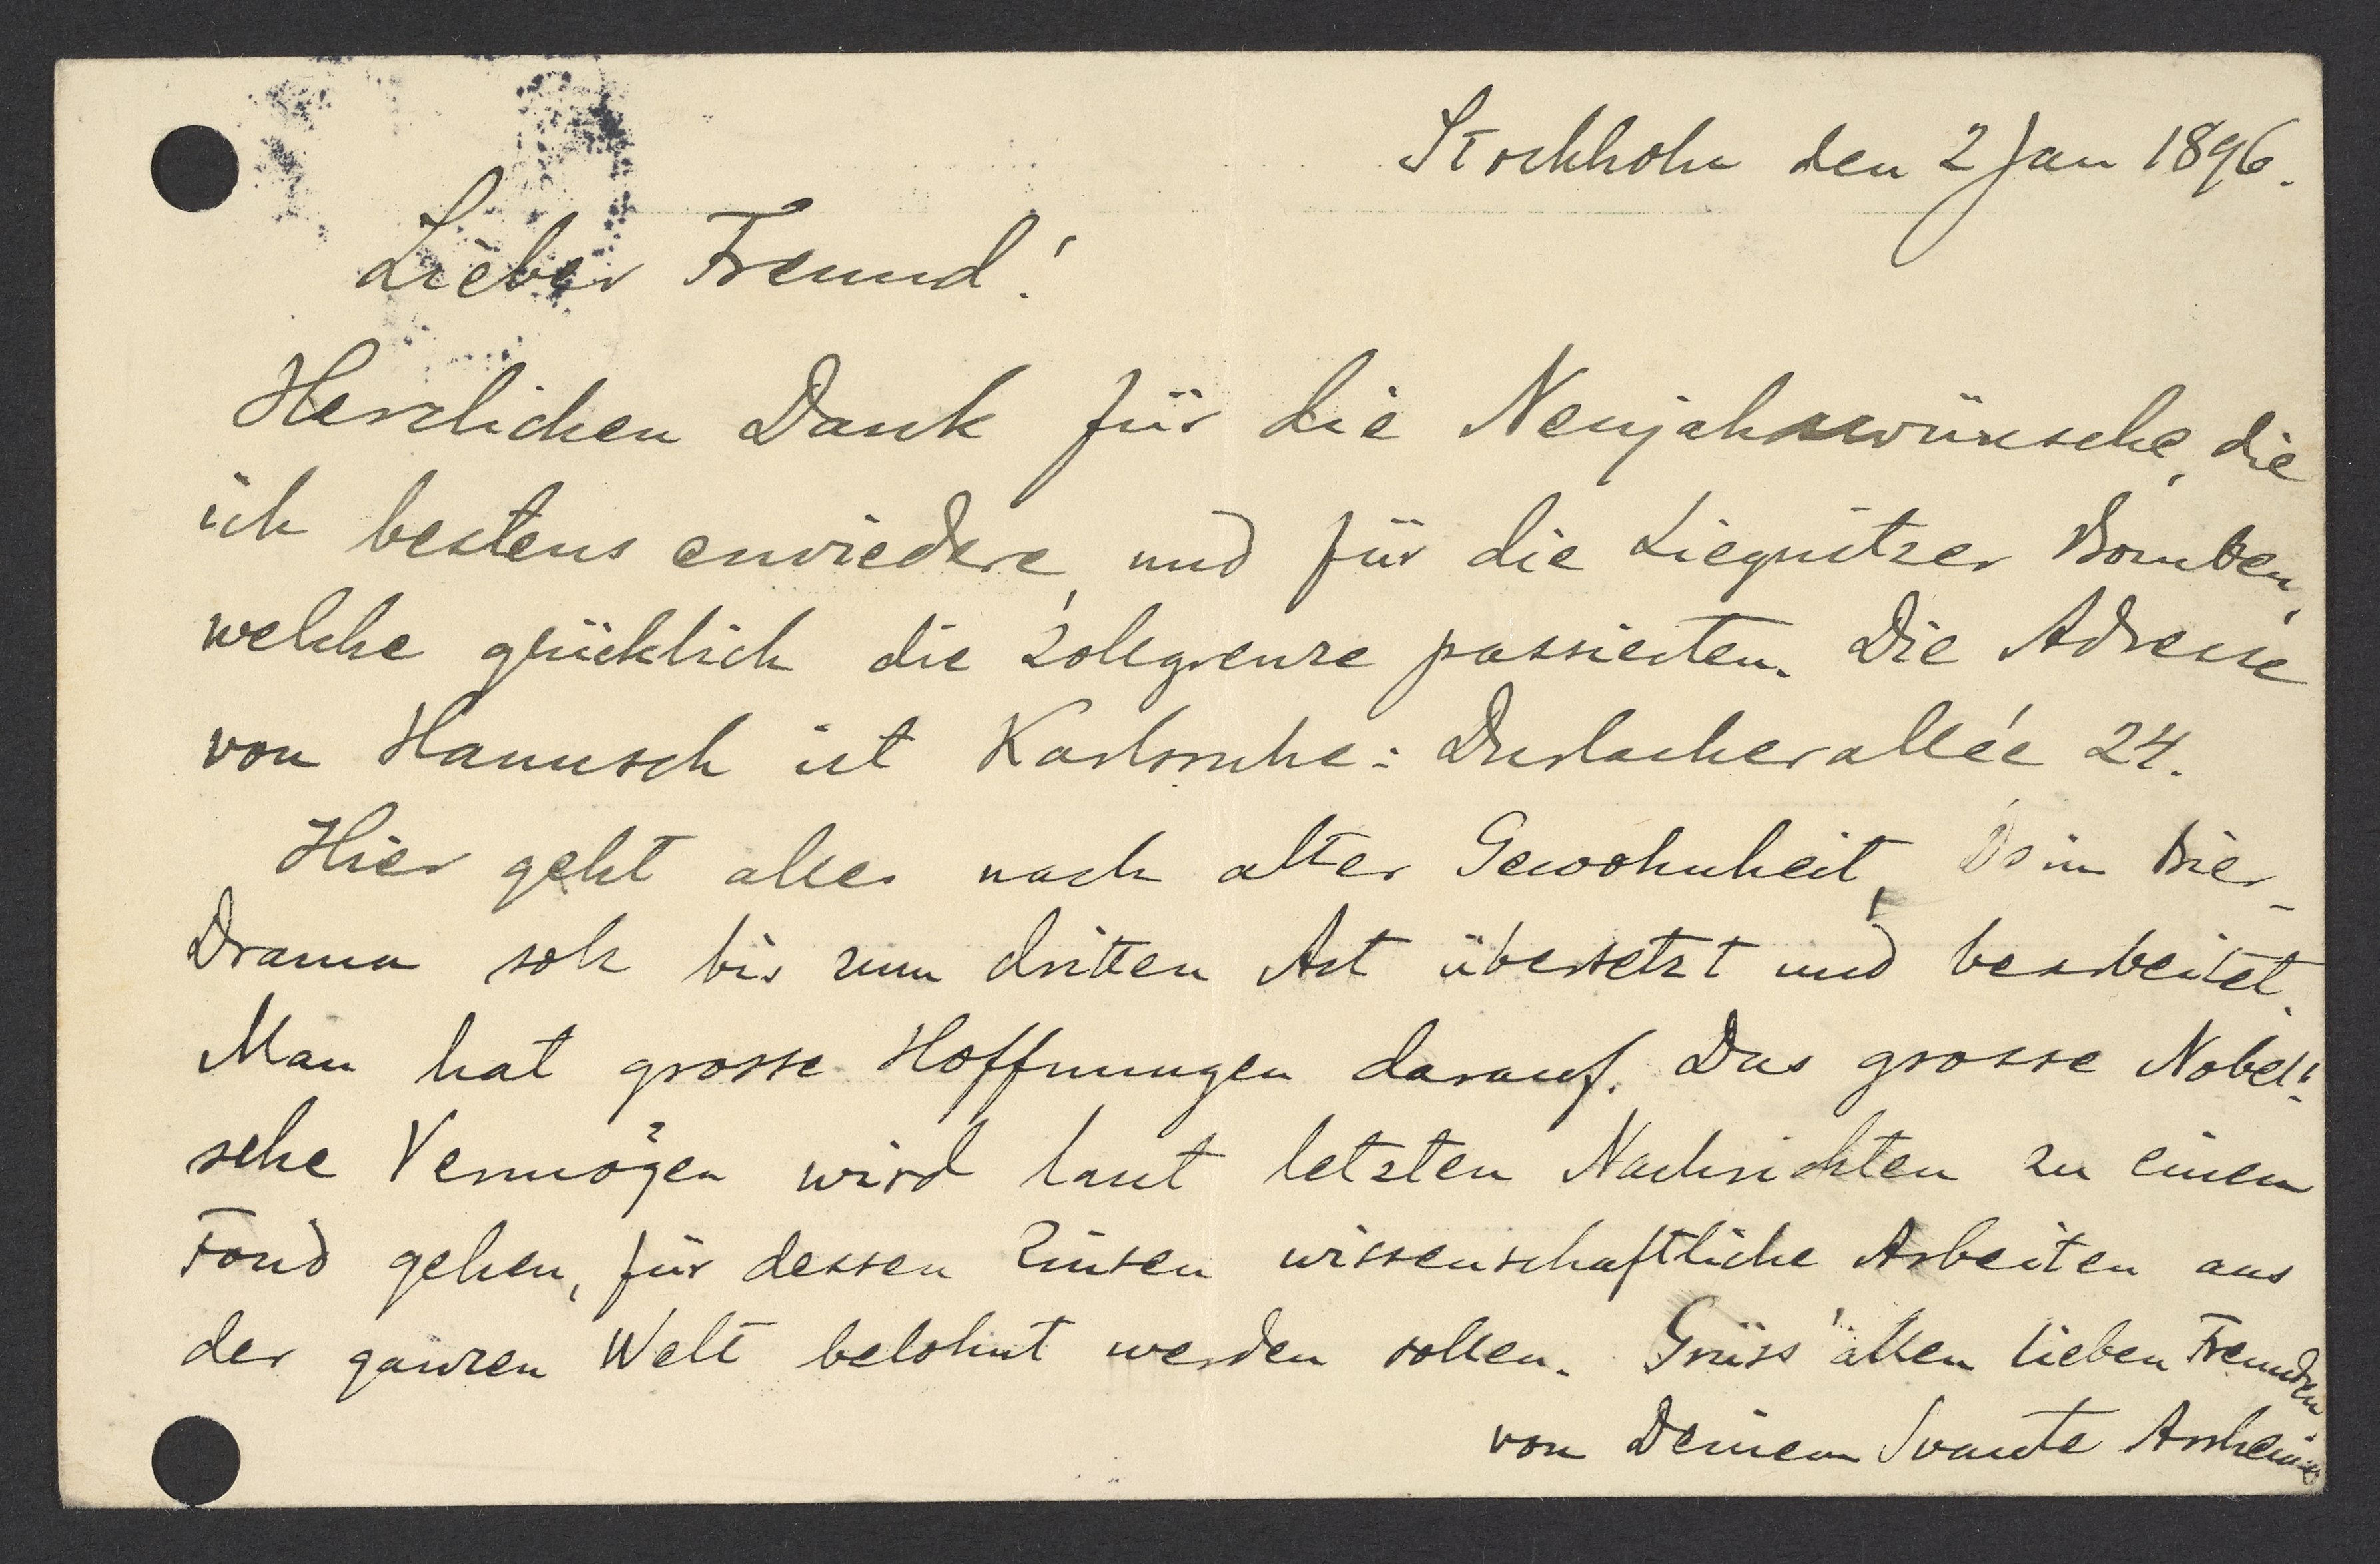 Stockholm den 2 Jan 1896.
Lieber Freund!
Herzlichen Dank für die Neujahrswünsche, die
ich bestens erwiedere, und für die Liegnitzer Bomben,
welche glücklich die Zollgrenze passierten. Die Adresse
von Hannusch ist Karlsruhe: Durlacherallée 24.
Hier geht alles nach alter Gewohnheit, Dein Bier-
Drama soll bis zum dritten Act übersetzt und bearbeitet.
Man hat grosse Hoffnungen darauf. Das grosse Nobel'-
sche Vermögen wird laut letzten Nachrichten zu einem
Fond gehen, für dessen Zinsen wissenschaftliche Arbeiten aus
der ganzen Welt belohnt werden sollen. Grüss' allen lieben Freunden
von Deinem Svante Arrhenius